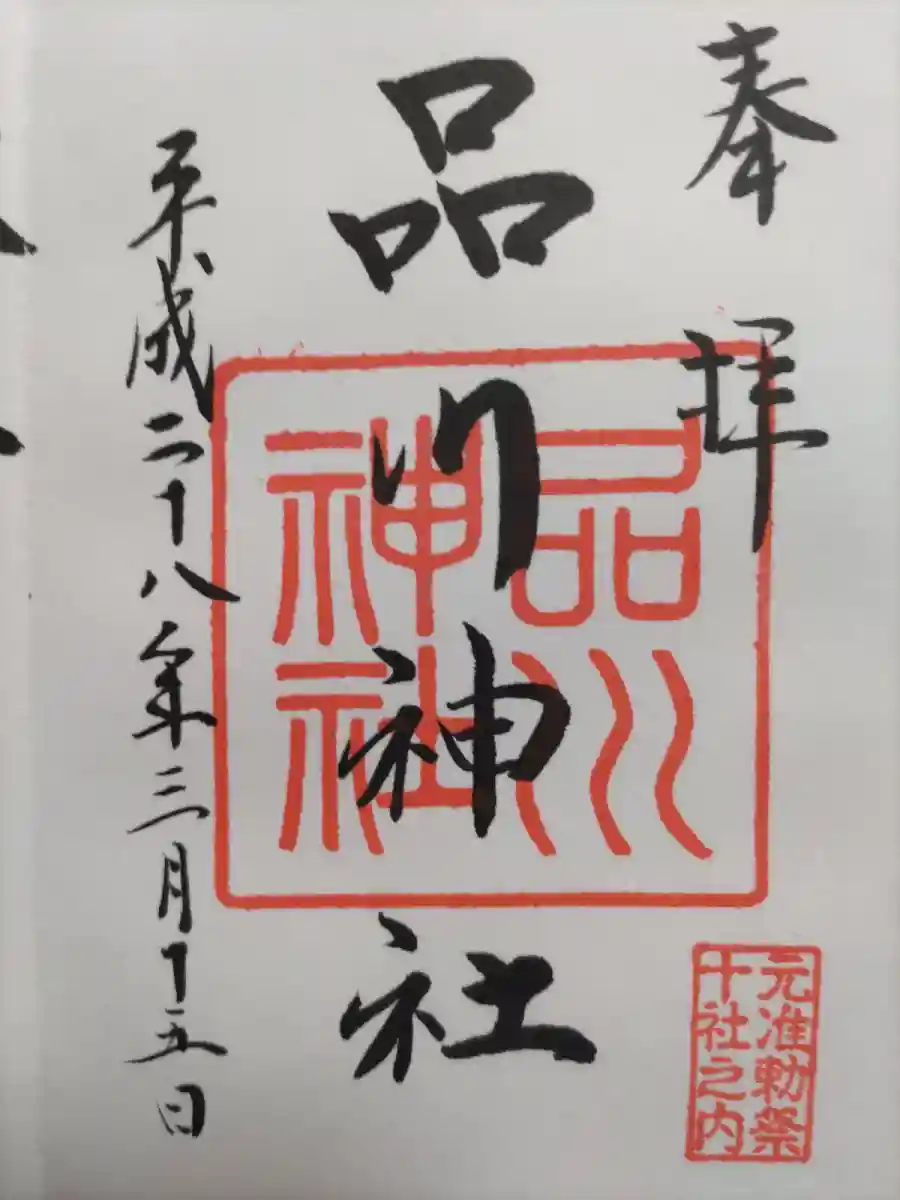 奉拝
品川神社
品川
神社
元准勅祭
十社之内
平成二十八年三月十五日